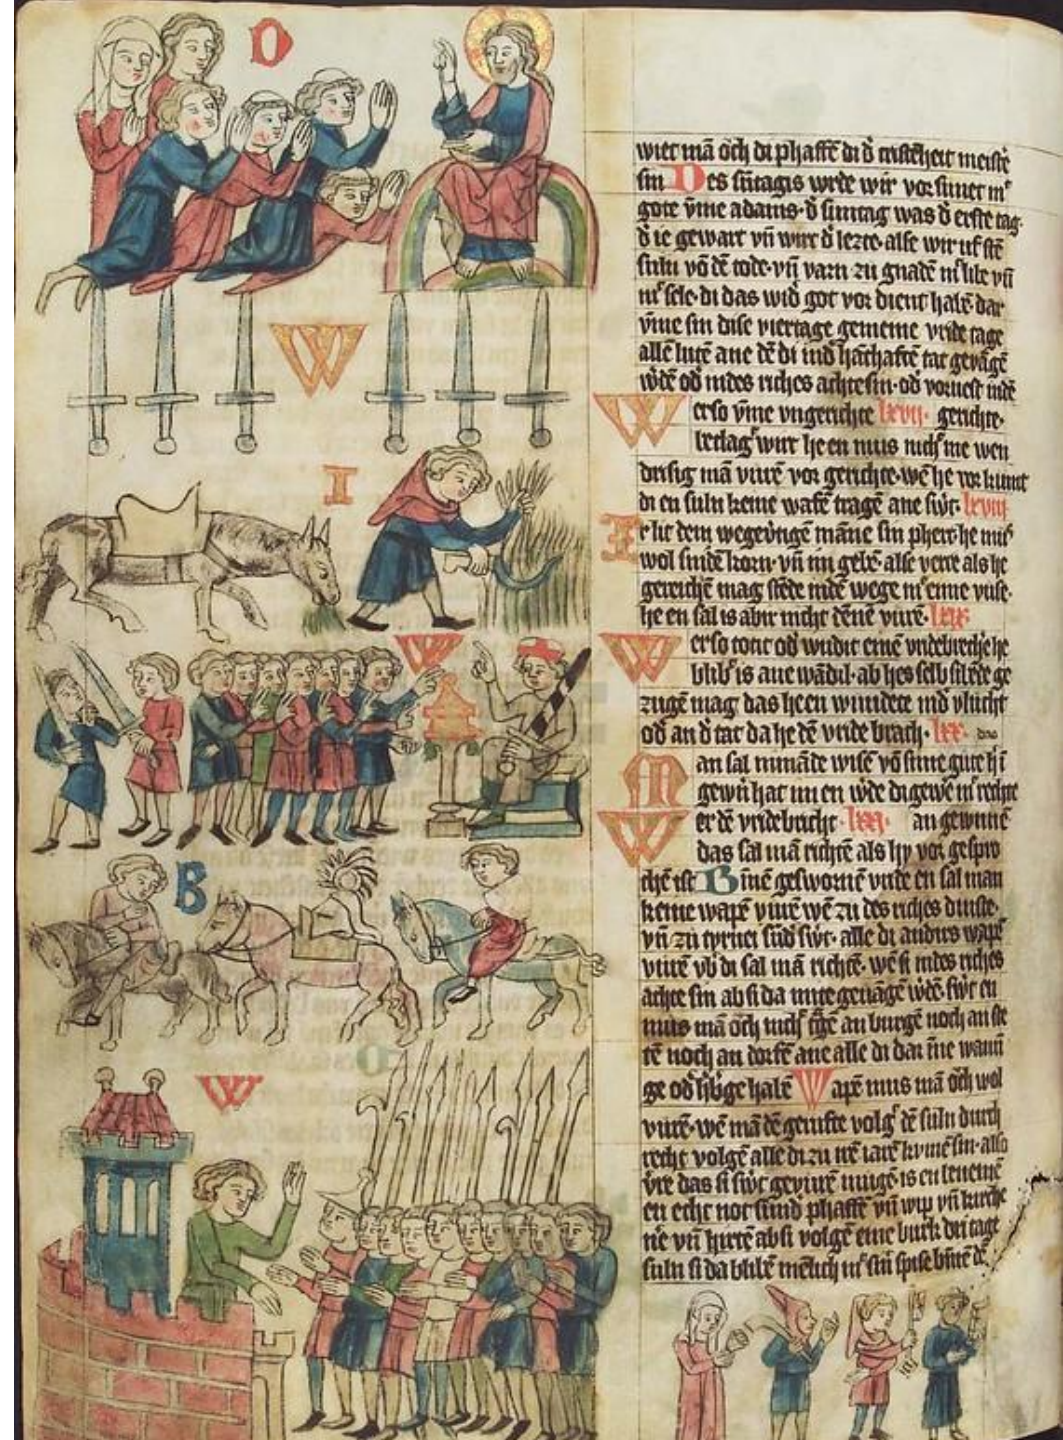 D
W
I
W
B
O
W
wiet mā och di phaffē di d' cristēheit meist'e
sin Des sūtagis wrde wir vorsunet mᵗ
gote vm̄e adams· d' suntag was d' erste tag·
d' ie gewart vn̄ wirt d' lezte· alse wir uf stē
suln vō dē tode· vn̄ varn zu gnadē mᵗ libe vn̄
mᵗ sele· di das wid' got vor dient habē dar
vm̄e sin dise viertage gemeine vride tage
allē lutē ane dē di in d' hāthaftē tat gevāgē
w'dē od' in des riches achte sin· od' vorvest in dē
Werso vm̄e ungerichte lxvii· gerichte·
beclag' wirt he en mus nich' me wen
drisig mā vurē vor gerichte· wē he vor kumt
di en suln keine wafē tragē ane sw't· lxviii
Irlit dem wegev'tigē māne sin phert· he mus
wol snidē korn· vn̄ im gebē· alse verre als he
gereichē mag stēde in dē wege mᵗ eime vuse·
he en sal is abir nicht dēnē vurē· lxix·
Werso totit od' wūdit einē vridebrech'e he
blib' is ane wādil· ab hes selb sibēde ge
zugē mag das he en wundete in d' vlucht
od' an d' tat da he dē vride brach· lxx· das
Man sal nimāde wisē vō sime gute hi
gewū hat im en w'de di gewe' mᵗ rechte
Wer dē vridebricht· lxxi· an gewunnē
das sal mā richtē als hy vor gespro
chē ist Binnē geswornē vride en sal man
keine wapē vurē wē zu des riches dinste·
vn̄ zu tyrnei sūd' sw't· alle di andirs wapē
vurē vb' di sal mā richtē· wē si in des riches
achte sin ab si da mite gevāgē w'dē· sw't en
mus mā och nich' t'gē an burgē noch an ste
tē noch an dorfē ane alle di dar in̄e wanū
ge od' h'b'ge habē Wapē mus mā och wol
vurē· wē mā dē gerufte volg' dē suln durch
recht volgē alle di zu irē iarē kumē sin· also
v're das si sw't gevurē mugē· is en lenemē
en echt not sund' phaffē vn̄ wip vn̄ kirche
n'e vn̄ hirtē ab si volgē eine burk dri tage
suln si da blibē menlich mᵗ sin' spise binē dē